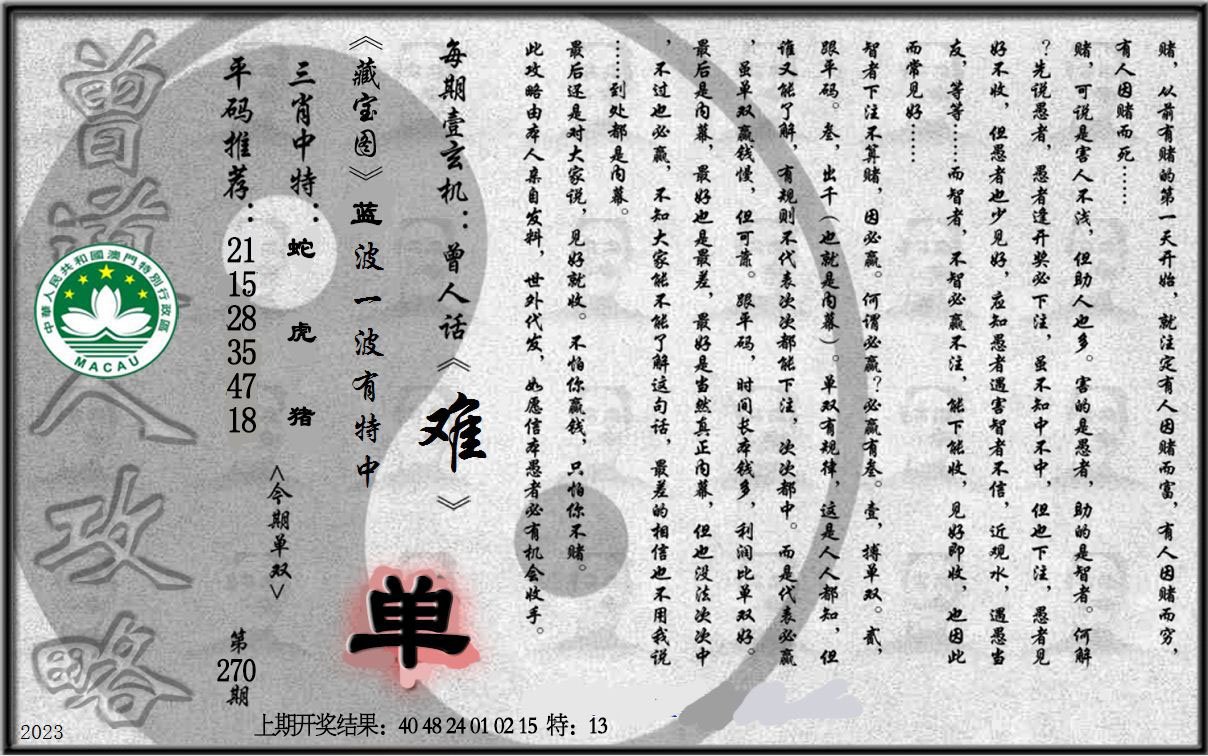 赌，从前有赌的第一天开始，就注定有人因赌而富，有人因赌而穷，
有人因赌而死……
赌，可说是害人不浅，但助人也多。害的是愚者，助的是智者。何解
？先说愚者，愚者逢开奖必下注，虽不知中不中，但也下注，愚者见
好不收，但愚者也少见好，应知愚者遇害智者不信，近观水，遇愚当
友，等等……而智者，不智必赢不注，能下能收，见好即收，也因此
而常见好……
智者下注不算赌，因必赢。何谓必赢？必赢有叁。壹，搏单双。贰，
跟平码。叁，出千（也就是内幕）。单双有规律，这是人人都知，但
谁又能了解，有规则不代表次次都能下注，次次都中。而是代表必赢
，虽单双赢钱慢，但可靠。跟平码，时间长本钱多，利润比单双好。
最后是内幕，最好也是最差，最好是当然真正内幕，但也没法次次中
，不过也必赢，不知大家能不能了解这句话，最差的相信也不用我说
……到处都是内幕。
最后还是对大家说，见好就收。不怕你赢钱，只怕你不赌。
此攻略由本人亲自发料，世外代发，如愿信本愚者必有机会收手。
每期壹玄机：曾人话《难》
《藏宝图》蓝波一波有特中
单
三肖中特：蛇 虎 猪
<今期单双>
平码推荐：21 15 28 35 47 18
第270期
曾道人攻略
中華人民共和國澳門特別行政區
MACAU
上期开奖结果：40 48 24 01 02 15 特：13
2023